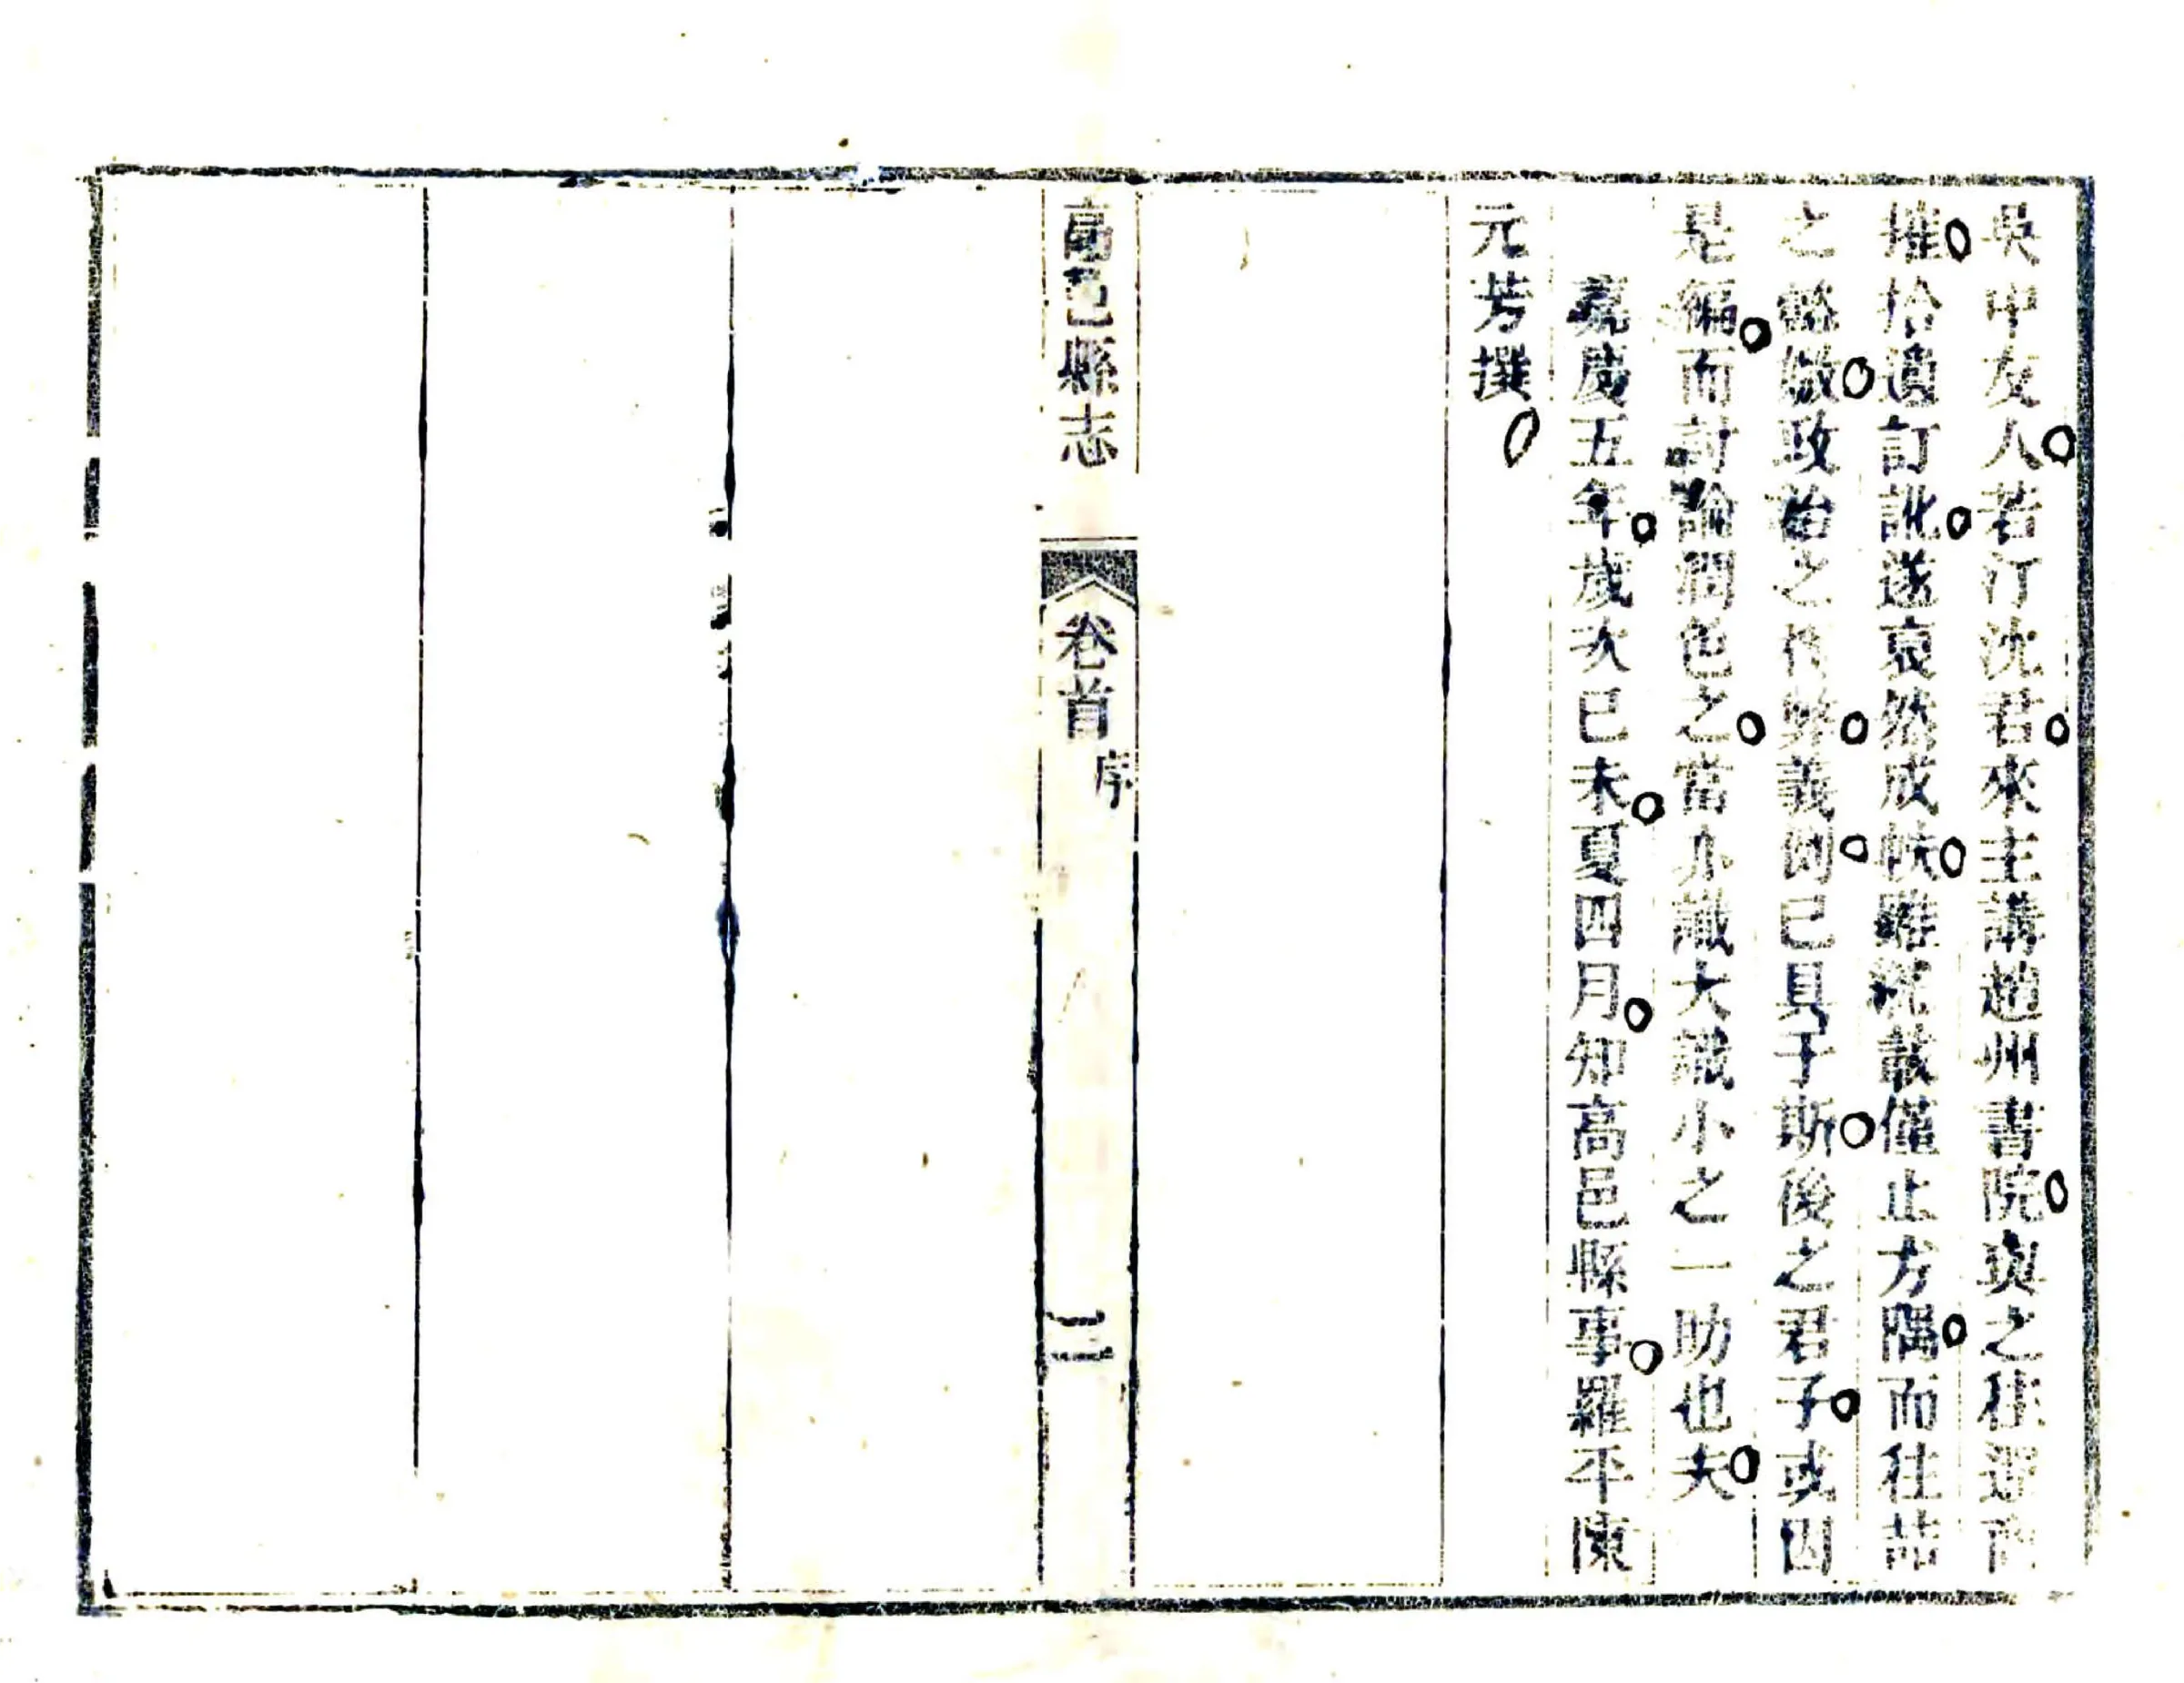 吳中友人若汀沈君來主講趙州書院與之往還商
摧拾遺訂訛遂裒然成帙雖紀載僅止方隅而往喆
之徽政治之 義例已具于斯後之君子或因
是編而討論潤色之當亦識大識小之一助也夫
嘉慶五年歲次己未夏四月知高邑縣事羅平陳
元芳撰
高邑縣志
卷首
序
二